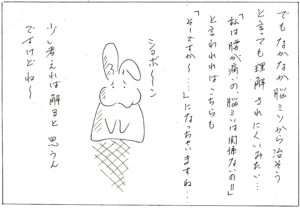 でもなかなか脳ミソから治そう
と言っても理解されにくいみたい…
「私は腰が痛いの、脳ミソは関係ないの!!」
と言われればこちらも
「そーですか〜……」になっちゃいますね…
ショボ〜ン
少し考えれば解ると思うん
ですけどね〜